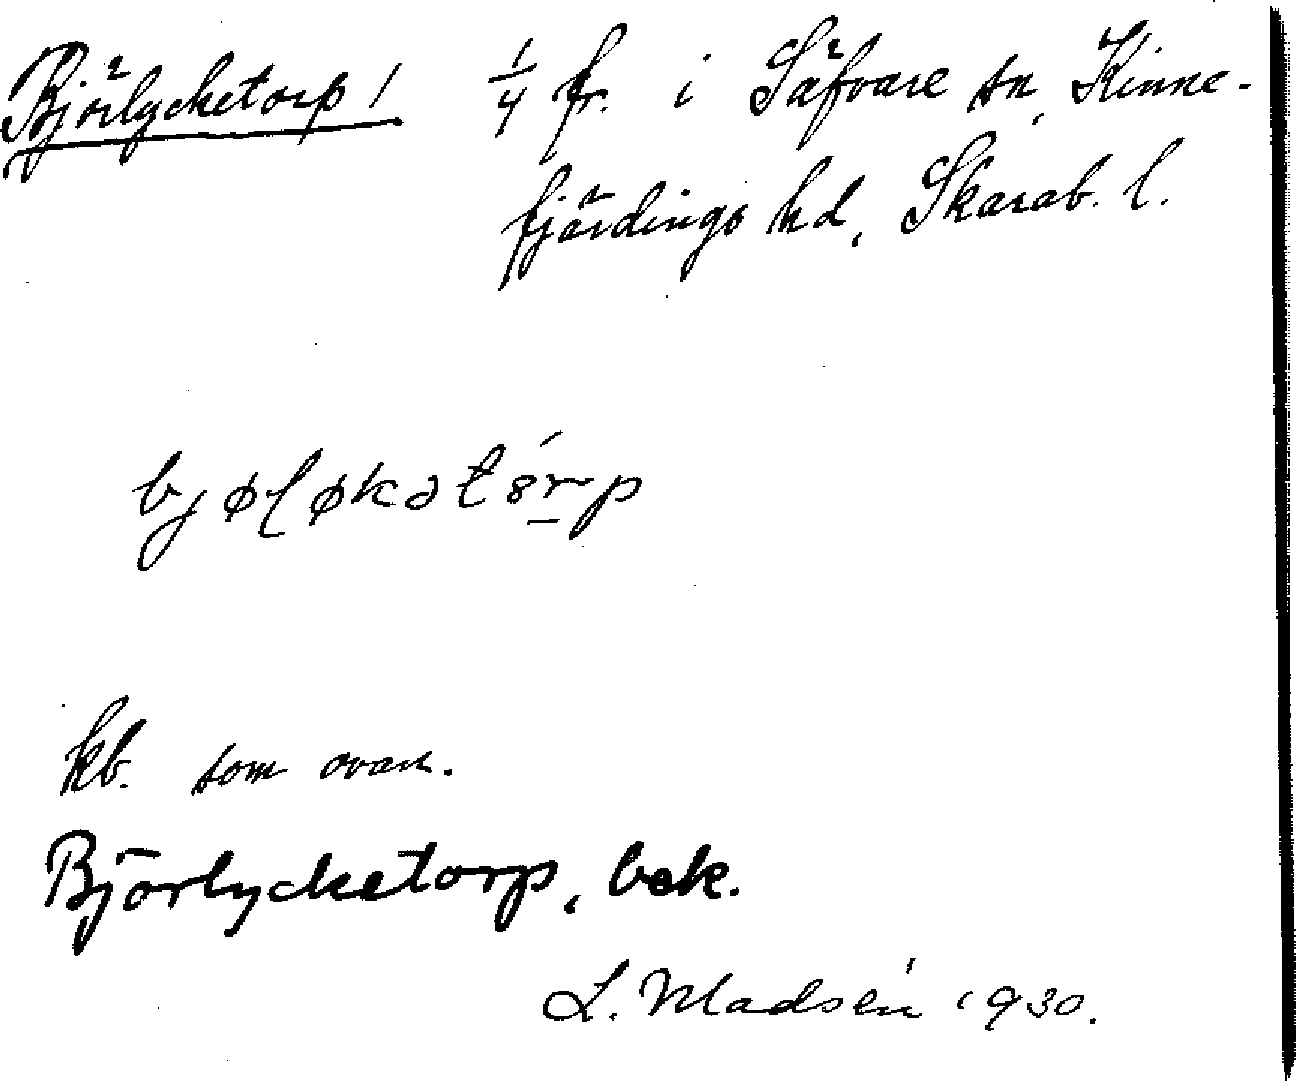 Björlycketorp! 1/4 fr. i Säfvare sn, Kinne-
fjärdings hd, Skarab. l.
bjøḷøkətȣ́rp
kb. som ovan.
Björlycketorp, bek.
L. Madsén 1930.